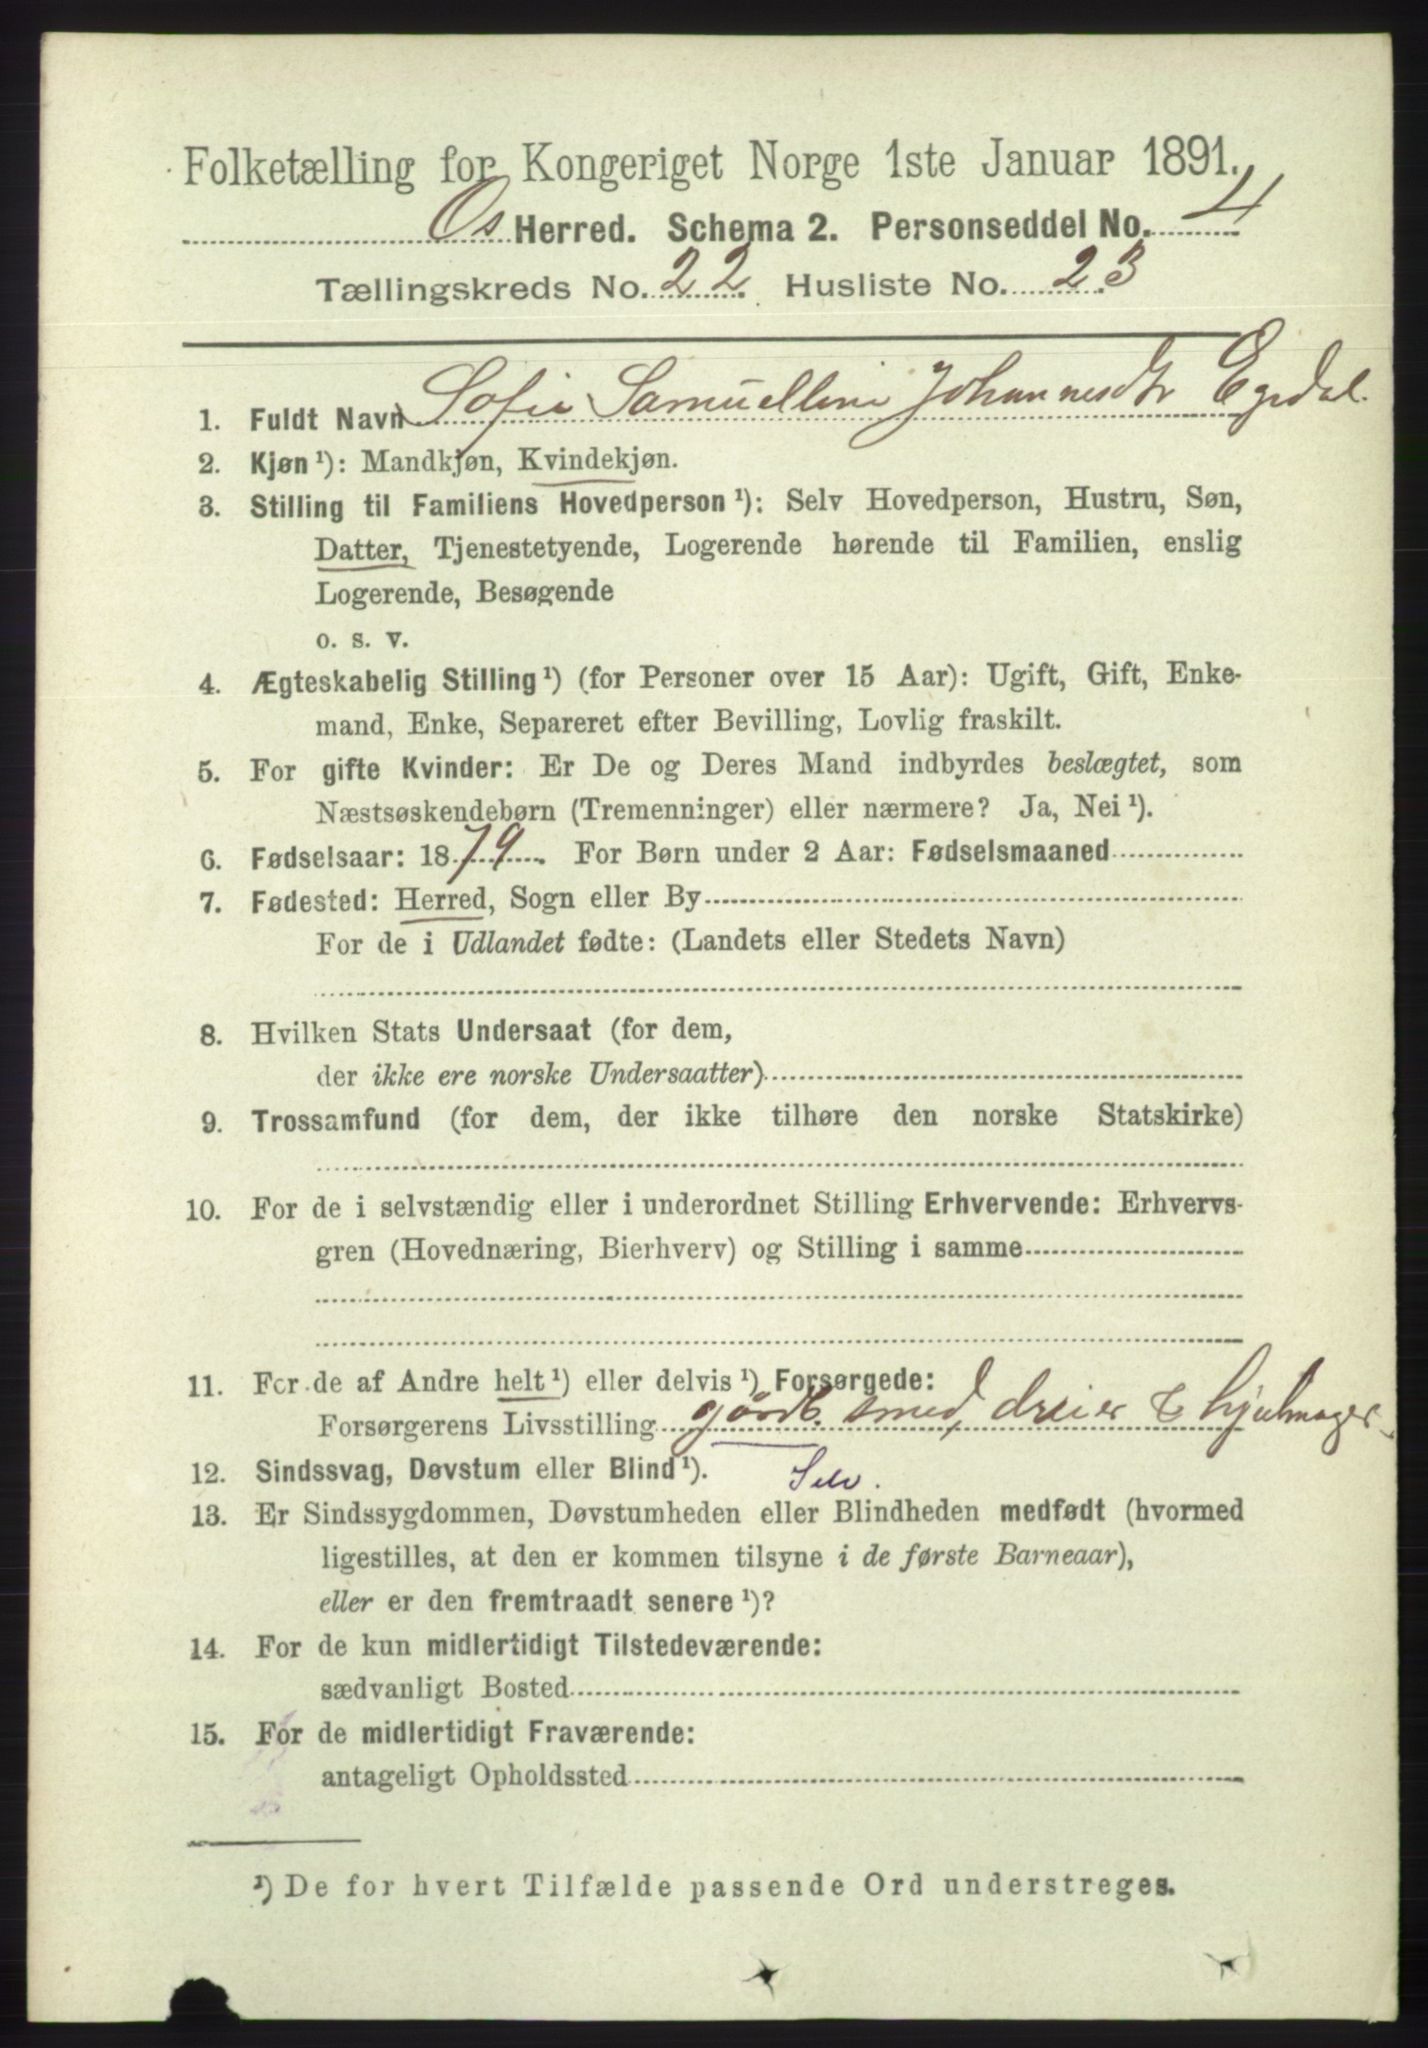 Folketælling for Kongeriget Norge 1ste Januar 1891.
Os Herred. Schema 2. Personseddel No. 4
Tællingskreds No. 22. Husliste No. 23
1. Fuldt Navn Sofie Samueline Johannesdtr Egdal.
2. Kjøn ¹): Mandkjøn, Kvindekjøn.
3. Stilling til Familiens Hovedperson ¹): Selv Hovedperson, Hustru, Søn,
Datter, Tjenestetyende, Logerende hørende til Familien, enslig
Logerende, Besøgende
o. s. v.
4. Ægteskabelig Stilling ¹) (for Personer over 15 Aar): Ugift, Gift, Enke-
mand, Enke, Separeret efter Bevilling, Lovlig fraskilt.
5. For gifte Kvinder: Er De og Deres Mand indbyrdes beslægtet, som
Næstsøskendebørn (Tremenninger) eller nærmere? Ja, Nei ¹).
6. Fødselsaar: 1879. For Børn under 2 Aar: Fødselsmaaned
7. Fødested: Herred, Sogn eller By
For de i Udlandet fødte: (Landets eller Stedets Navn)
8. Hvilken Stats Undersaat (for dem,
der ikke ere norske Undersaatter)
9. Trossamfund (for dem, der ikke tilhøre den norske Statskirke)
10. For de i selvstændig eller i underordnet Stilling Erhvervende: Erhvervs-
gren (Hovednæring, Bierhverv) og Stilling i samme
11. For de af Andre helt ¹) eller delvis ¹) Forsørgede:
Forsørgerens Livsstilling smed, dreier & hjulmager
12. Sindssvag, Døvstum eller Blind ¹). Selv.
13. Er Sindssygdommen, Døvstumheden eller Blindheden medfødt (hvormed
ligestilles, at den er kommen tilsyne i de første Barneaar),
eller er den fremtraadt senere ¹)?
14. For de kun midlertidigt Tilstedeværende:
sædvanligt Bosted
15. For de midlertidigt Fraværende:
antageligt Opholdssted
¹) De for hvert Tilfælde passende Ord understreges.